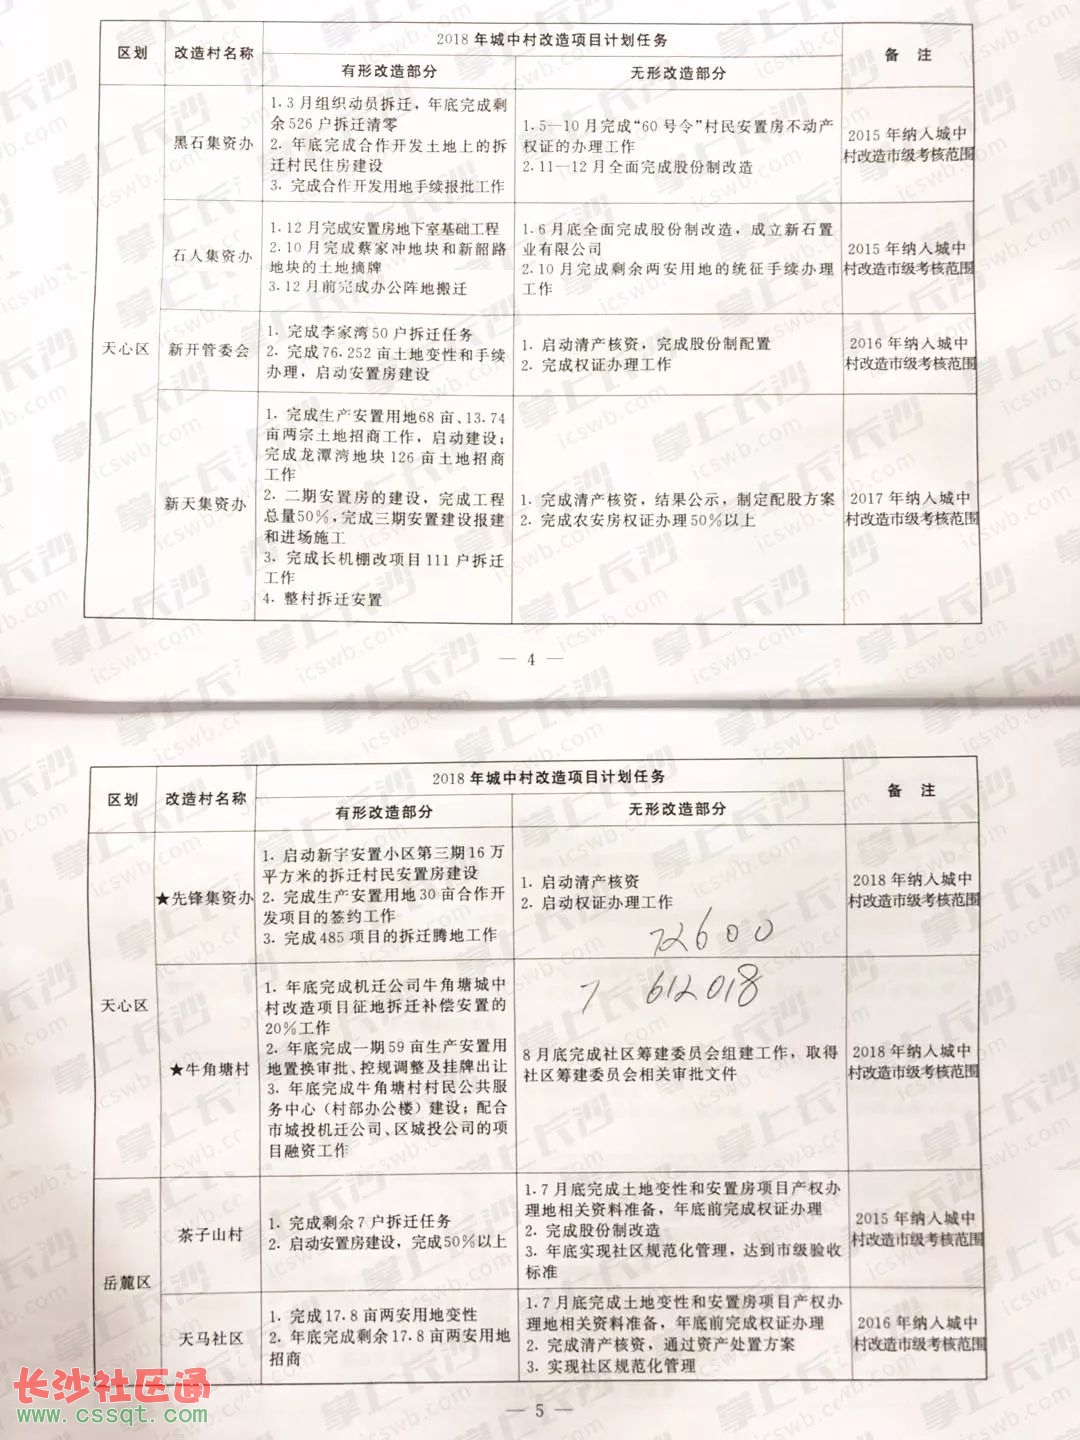 2018年城中村改造项目计划任务
区划
改造村名称
备 注
有形改造部分
无形改造部分
天心区
黑石集资办
1.3月组织动员拆迁，年底完成剩
余526户拆迁清零
2. 年底完成合作开发土地上的拆
迁村民住房建设
3. 完成合作开发用地手续报批工作
1.5—10月完成“60号令”村民安置房不动产
权证的办理工作
2.11—12月全面完成股份制改造
2015年纳入城中
村改造市级考核范围
石人集资办
1.12月完成安置房地下室基础工程
2.10月完成蔡家冲地块和新韶路
地块的土地摘牌
3.12月前完成办公阵地搬迁
1.6月底全面完成股份制改造，成立新石置
业有限公司
2.10月完成剩余两安用地的统征手续办理
工作
2015年纳入城中
村改造市级考核范围
新开管委会
1. 完成李家湾50户拆迁任务
2. 完成76.252亩土地变性和手续
办理，启动安置房建设
1. 启动清产核资，完成股份制配置
2. 完成权证办理工作
2016年纳入城中
村改造市级考核范围
新天集资办
1. 完成生产安置用地68亩、13.74
亩两宗土地招商工作，启动建设；
完成龙潭湾地块126亩土地招商
工作
2. 二期安置房的建设，完成工程
总量50%，完成三期安置建设报建
和进场施工
3. 完成长机棚改项目111户拆迁
工作
4. 整村拆迁安置
1. 完成清产核资，结果公示，制定配股方案
2. 完成农安房权证办理50%以上
2017年纳入城中
村改造市级考核范围
— 4 —
2018年城中村改造项目计划任务
区划
改造村名称
备 注
有形改造部分
无形改造部分
天心区
★先锋集资办
1. 启动新宇安置小区第三期16万
平方米的拆迁村民安置房建设
2. 完成生产安置用地30亩合作开
发项目的签约工作
3. 完成485项目的拆迁腾地工作
1. 启动清产核资
2. 启动权证办理工作
72600
7 612018
2018年纳入城中
村改造市级考核范围
★牛角塘村
1. 年底完成机迁公司牛角塘城中
村改造项目征地拆迁补偿安置的
20%工作
2. 年底完成一期59亩生产安置用
地置换审批、控规调整及挂牌出让
3. 年底完成牛角塘村村民公共服
务中心（村部办公楼）建设；配合
市城投机迁公司、区城投公司的项
目融资工作
8月底完成社区筹建委员会组建工作，取得
社区筹建委员会相关审批文件
2018年纳入城中
村改造市级考核范围
岳麓区
茶子山村
1. 完成剩余7户拆迁任务
2. 启动安置房建设，完成50%以上
1.7月底完成土地变性和安置房项目产权办
理地相关资料准备，年底前完成权证办理
2. 完成股份制改造
3. 年底实现社区规范化管理，达到市级验收
标准
2015年纳入城中
村改造市级考核范围
天马社区
1. 完成17.8亩两安用地变性
2. 年底完成剩余17.8亩两安用地
招商
1.7月底完成土地变性和安置房项目产权办
理地相关资料准备，年底前完成权证办理
2. 完成清产核资，通过资产处置方案
3. 实现社区规范化管理
2016年纳入城中
村改造市级考核范围
— 5 —
长沙社区通
www.cssqt.com
掌上长沙
icswb.com